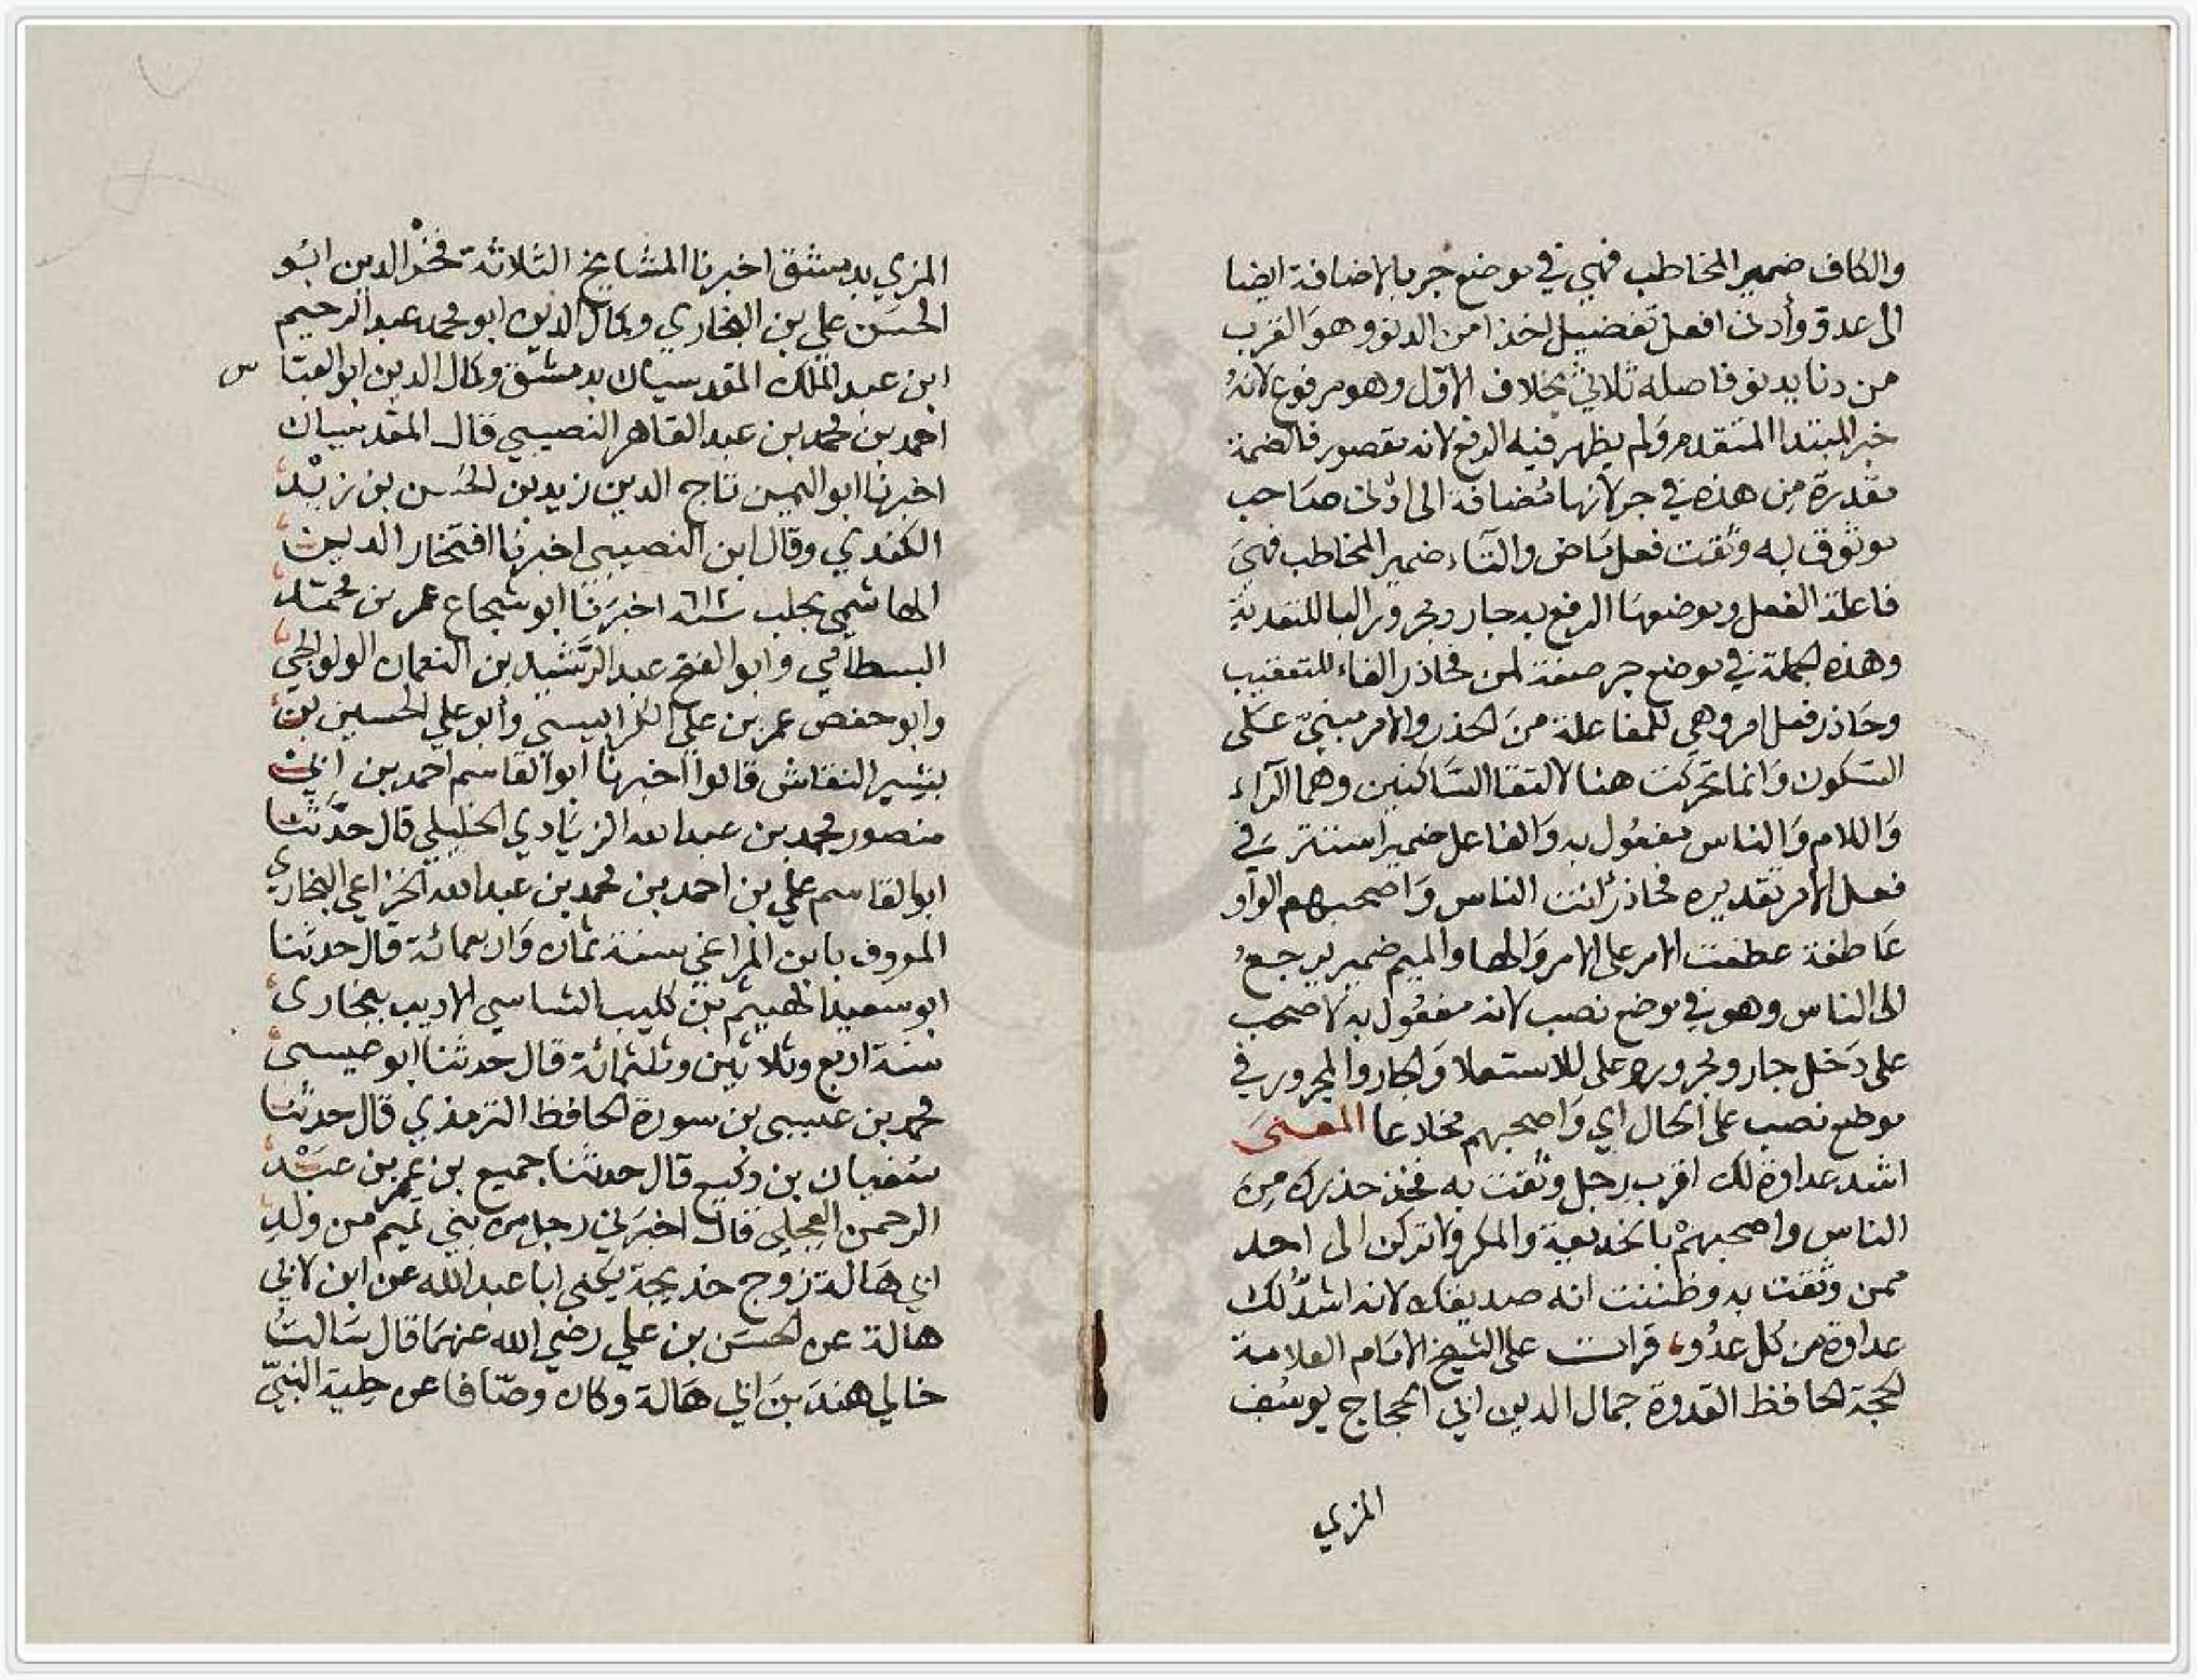 والكاف ضمير المخاطب فهي في موضع جر بالاضافة ايضا
الى عدو وأدنى افعل تفضيل اخذا من الدنو وهو القرب
من دنا يدنو فاصله ثلاثي بخلاف الاول وهو مرفوع لانه
خبر المبتدا المتقدم ولم يظهر فيه الرفع لانه مقصور فالضمة
مقدرة من هذه في جر لانها مضافة الى ادنى صاحب
موثوق به وثقت فعل ماض والتاء ضمير المخاطب فهي
فاعلة الفعل وموضعها الرفع به جار ومجرور البا للتعدية
وهذه الجملة في موضع جر صفة لمن فحاذر الفاء للتعقيب
وحاذر فعل امر وهي للمفاعلة من الحذر والامر مبني على
السكون وانما تحركت هنا لالتقا الساكنين وهما الراء
واللام والناس مفعول به والفاعل ضمير استتر في
فعل الامر تقديره فحاذر انت الناس واصحبهم الواو
عاطفة عطفت الامر على الامر والها والميم ضمير يرجع
الى الناس وهو في موضع نصب لانه مفعول به لاصحب
على دخل جار ومجروره على للاستعلا والجار والمجرور في
موضع نصب على الحال اي واصحبهم مخادعا المعنى
اشد عداوة لك اقرب رجل وثقت به فخذ حذرك من
الناس واصحبهم بالخديعة والمكر ولا تركن الى احد
ممن وثقت به وظننت انه صديقك لانه اشد لك
عداوة من كل عدو، قرات على الشيخ الامام العلامة
الحجة الحافظ القدوة جمال الدين ابي الحجاج يوسف
المزي
المزي بدمشق اخبرنا المشايخ الثلاثة فخر الدين ابو
الحسن علي بن البخاري وكمال الدين ابو محمد عبد الرحيم
ابن عبد الملك المقدسيان بدمشق وكمال الدين ابو العبا س
احمد بن محمد بن عبد القاهر النصيبي قال المقدسيان
اخبرنا ابو اليمن تاج الدين زيد بن الحسن بن زيد
الكندي وقال ابن النصيبي اخبرنا افتخار الدين
الهاشمي بحلب اخبرنا ابو شجاع عمر بن محمد
البسطامي وابو الفتح عبد الرشيد بن النعمان الولوالجي
وابو حفص عمر بن علي الكرابيسي وأبو علي الحسين بن
بشير النقاش قالوا اخبرنا ابو القاسم احمد بن ابي
منصور محمد بن عبد الله الزيادي الخليلي قال حدثنا
ابو القاسم علي بن احمد بن محمد بن عبد الله الخزاعي البخاري
المعروف بابن المراغي سنة ثمان واربعمائة قال حدثنا
ابو سعيد الهيثم بن كليب الشاسي الاديب ببخارى
سنة اربع وثلاثين وثلثمائة قال حدثنا ابو عيسى
محمد بن عيسى بن سورة الحافظ الترمذي قال حدثنا
سفيان بن وكيع قال حدثنا جميع بن عمر بن عبد
الرحمن العجلي قال اخبرني رجل من بني تميم من ولد
ابي هالة زوج خديجة يكنى ابا عبد الله عن ابن لابي
هالة عن الحسن بن علي رضي الله عنهما قال سالت
خالي هند بن ابي هالة وكان وصافا عن حلية النبي